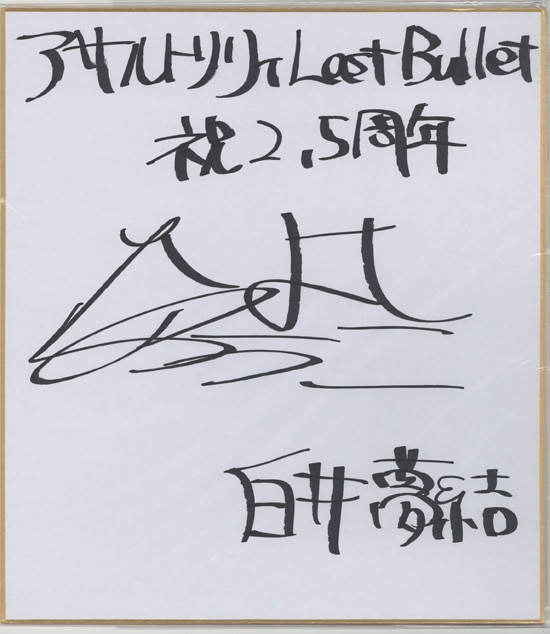 アサルトリリィ Last Bullet
祝2.5周年
白井夢結